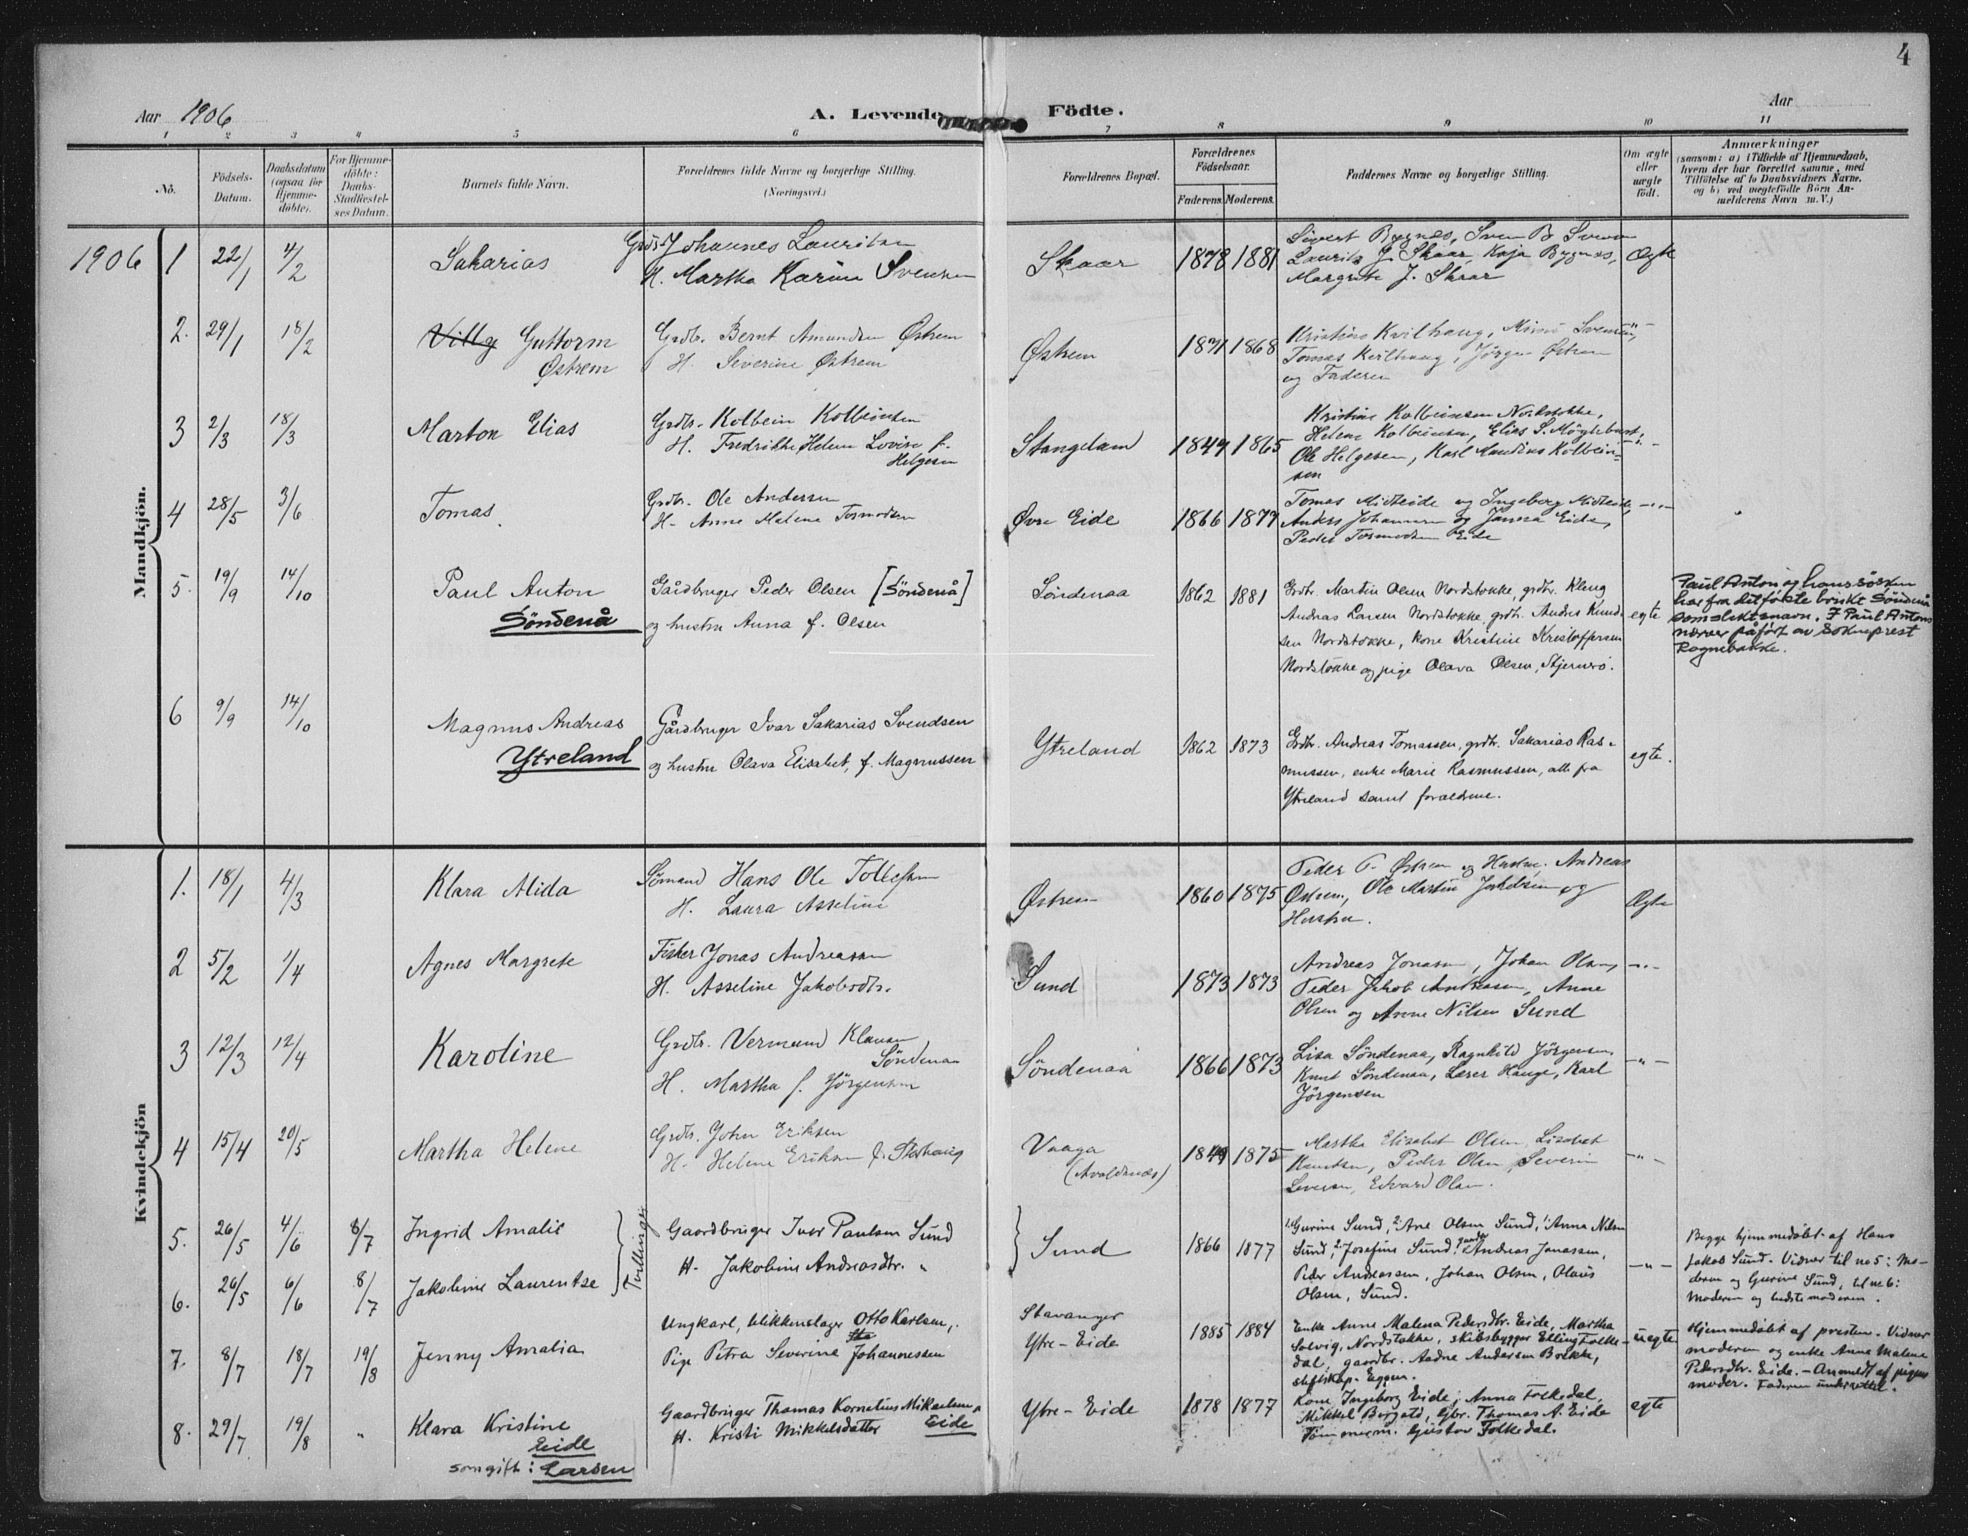 4
Aar 1906
A. Levende Födte.
Aar
1 2 3 4 5 6 7 8 9 10 11
No.
Födsels-Datum.
Daabsdatum (ogsaa for Hjemme-döbte).
For Hjemme-döbte: Daabs-Stadfæstel-ses Datum.
Barnets fulde Navn.
Forældrenes fulde Navne og borgerlige Stilling. (Næringsvei.)
Forældrenes Bopæl.
Forældrenes Födselsaar.
Faderens. Moderens.
Faddernes Navne og borgerlige Stilling.
Om ægte eller uægte födt.
Anmærkninger
(saasom: a) i Tilfælde af Hjemmedaab, hvem der har forrettet samme, med Tilföielse af to Daabsvidners Navne, og b) ved uægtefödte Börn An-melderens Navn m. V.)
Mandkjön.
1906 1 22/1 4/2 Sakarias
Grdbr. Johannes Lauritsen
H. Martha Karine Svensen
Skaar 1878 1881
Sivert Bygnes, Sven B Svensen
Laurits J. Skaar, Kaja Bygnes,
Margrete J. Skaar
Ægte
2. 29/1 18/2 Villy Guttorm
Østrem
Grdbr. Bernt Amundsen Østrem
H. Severine Østrem
Østrem 1871 1868
Kristine Kvilhaug, Mimi Svensen,
Tomas Kvilhaug, Jörgen Østrem
og Faderen
3 2/3 18/3 Marton Elias
Grdbr. Kolbein Kolbeinsen
H. Fredrikke Helene Lovise f.
Helgesen
Stangeland 1847 1865
Kristine Kolbeinsen Nordstokke,
Helene Kolbeinsen, Elias S. Mögleburst,
Ole Helgesen, Karl Maudius Kolbein-
sen
4 28/5 3/6 Tomas
Grdbr. Ole Andersen
H. Anne Malene Tormodsen
Øvre Eide 1866 1877
Tomas Midteide og Ingeborg Midteide,
Anders Johannesen og Janna Eide,
Peder Tormodsen Eide
5. 19/9 14/10 Paul Anton
Söndenå
Gårdbruger Peder Olsen [Söndenå]
og hustru Anna f. Olsen
Söndenaa 1862 1881
Grdtr. Martin Olsen Nordstokke, grdtr. Kleng
Andreas Larsen Nordstokke, grdtr. Anders Knud-
sen Nordstokke, kone Kristine Kristoffersen
Nordstokke og pige Olava Olsen, Stjernrö.
egte
Paul Anton og hans søsken
har fra ditfökte brukt Söndenå
som slektsnavn. I Paul Antons
nærver påført av sokneprest
Rognebakke.
6 9/9 14/10 Magnus Andreas
Ytreland
Gårdbruger Ivar Sakarias Svendsen
og hustru Olava Elisabet, f. Magnussen
Ytreland 1862 1873
Grdtr. Andreas Tomassen, grdtr. Sakarias Ras-
mussen, enke Marie Rasmussen, alle fra
Ytreland samt forældrene.
egte.
Kvindekjön
1. 18/1 4/3 Klara Alida
Sømand Hans Ole Tollefsen
H. Laura Asseline
Østrem 1860 1875
Peder P. Østrem og Hustru. Andreas
Østrem, Ole Martin Jakobsen og
Hustru.
Ægte
2 5/2 1/4 Agnes Margrete
Fisker Jonas Andreassen
H. Asseline Jakobsdtr.
Sund 1873 1873
Andreas Jonassen, Johan Olsen,
Peder Jakob Andreasen, Anne
Olsen og Anne Nilsen Sund
3 12/3 12/4 Karoline
Grdbr. Vermund Klausen
Söndenaa
H. Martha f. Jörgensen
Söndenaa 1866 1873
Lisa Söndenaa, Ragnhild Jörgensen,
Knut Söndenaa, Laser Hauge, Karl
Jörgensen
4 15/4 20/5 Martha Helene
Grdbr. John Eriksen
H. Helene Eriksen f. Stathaug
Vaaga
(Avaldsnæs)
1849 1875
Martha Elisabet Olsen, Lisabet
Knutsen, Peder Olsen, Severin
Seversen, Edvard Olsen.
5. 26/5 4/6 8/7 Ingrid Amalie
6. 26/5 6/6 8/7 Jakobine Laurentse
Tvillinger
Gaardbruger Iver Paulsen Sund
H. Jakobine Andreasdtr. "
Sund 1866 1877
1. Gurine Sund, 2. Ane Olsen Sund, 1. Anna Nilsen
Sund, 2. Josefine Sund, Andreas Jonassen,
Peder Andreassen, Johan Olsen, Olaus
Olsen, Sund.
Begge hjemmedøbt af Hans
Jakob Sund. Vidner til no 5: Mo-
deren og Gurine Sund, til no 6:
Moderen og bedstemoderen.
7. 8/7 18/7 19/8 Jenny Amalia
Ungkarl, blikkenslager Otto Karlsen,
Pige Petra Severine Johannessen
Stavanger
Ytre-Eide
1885 1884
Enke Anne Malena Pedersdtr. Eide, Martha
Solvig, Nordstokke, skibsbygger Elling Folke-
dal, gaardbr. Aadne Andersen Brekke,
stiftskap. Eggen.
uegte
Hjemmedøbt af presten. Vidner
moderen og enke Anne Malene
Pedersdtr. Eide. - Anmeldt af pigens
moder. Faderen underrettet.
8. 29/7 19/8 " Klara Kristine
Eide
som gift: Larsen
Gaardbruger Thomas Kornelius Mikaelsen
H. Kristi Mikkelsdatter Eide
Ytre-Eide 1878 1877
Kone Ingeborg Eide, Anna Folkedal,
Mikkel Birgald, Gbr. Thomas A. Eide
Tömmerm. Gustav Folkedal.
egte